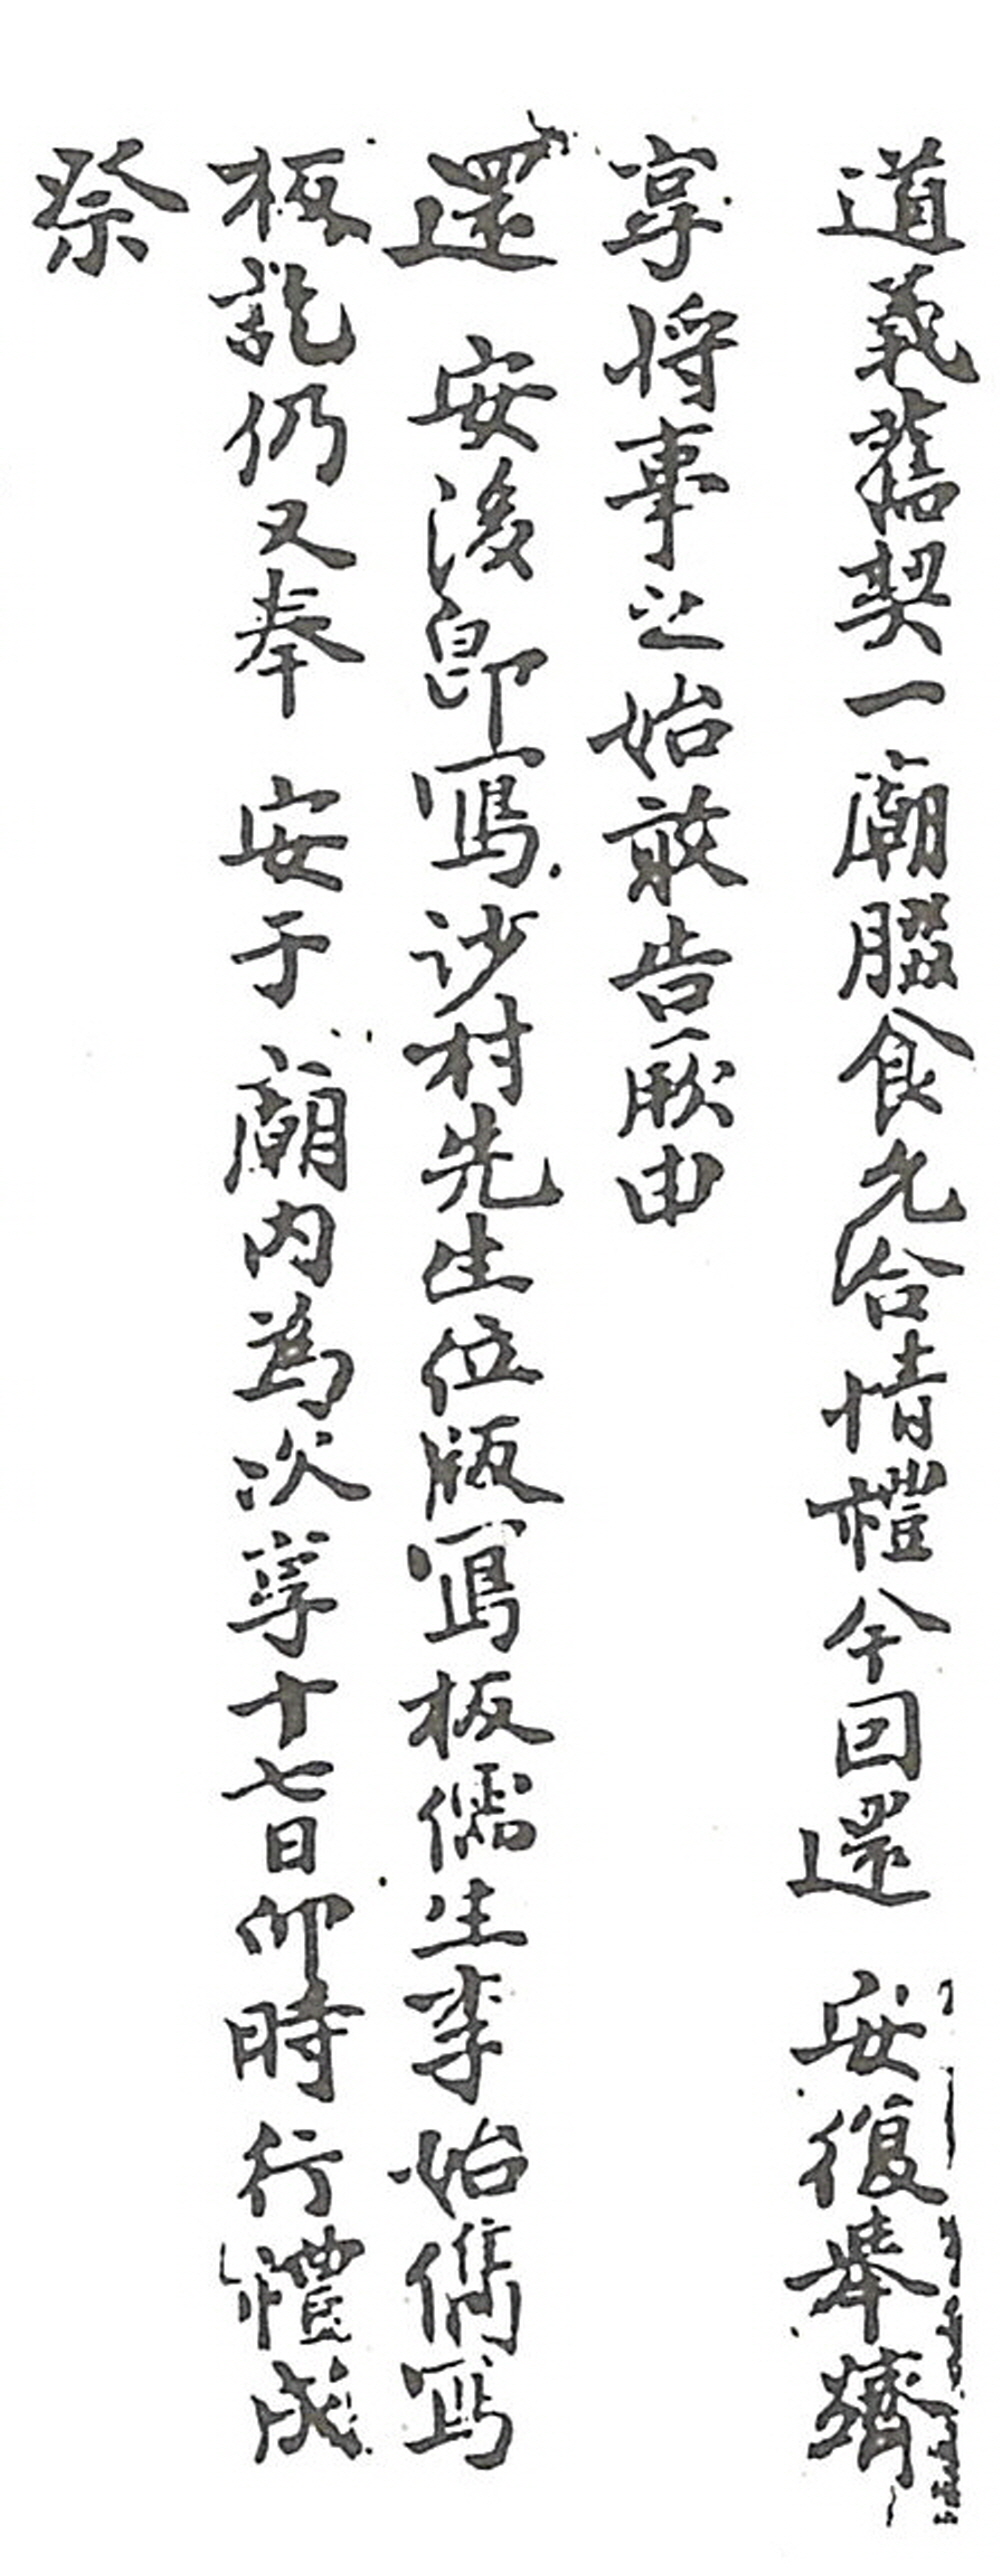 道義舊契一廟腏食允合情禮今回還 安復舉躋
享將事之始敢告厥由
還 安後卽寫沙村先生位版寫板儒生李始儁寫
板訖仍又奉 安于 廟內爲次享十七日卯時行禮成
祭